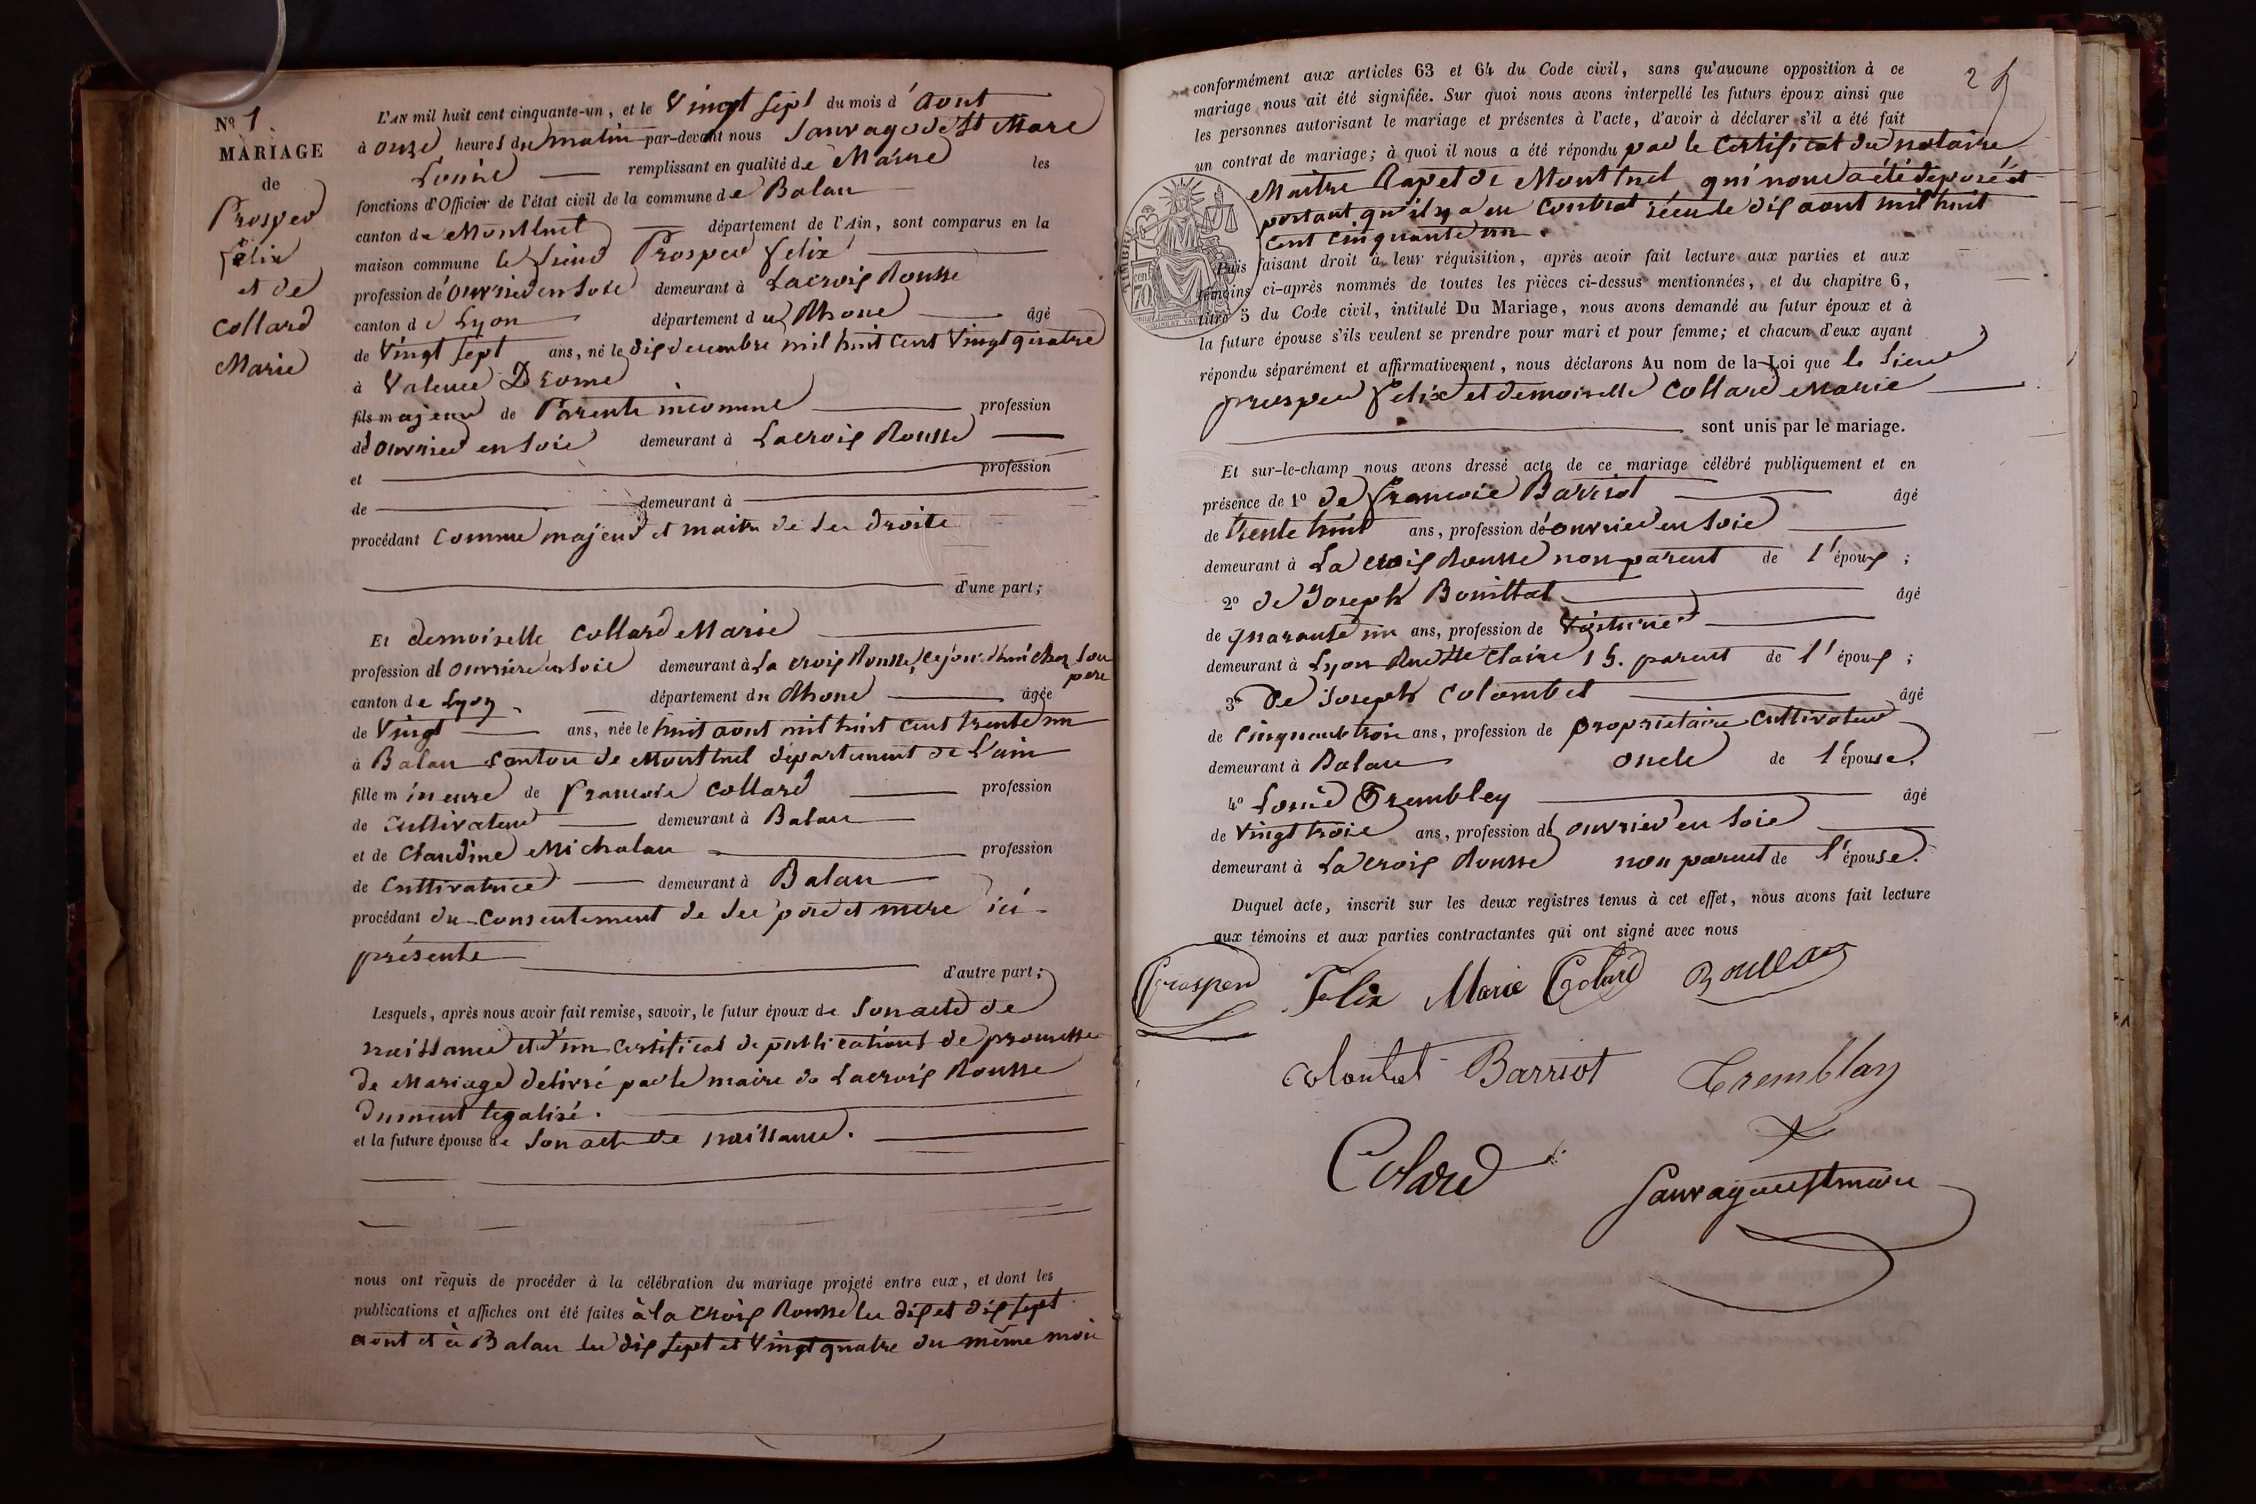 Nº 1
MARIAGE
de
Prosper
félix
et de
Collard
Marie
L'AN mil huit cent cinquante-un, et le Vingt sept du mois d'aout
à onze heures du matin par-devant nous Sauvage de St Marc
Louis remplissant en qualité de Maire les
fonctions d'Officier de l'état civil de la commune de Balan
canton de Montluel département de l'Ain, sont comparus en la
maison commune le Sieur Prosper felix
profession d'ouvrier en soie demeurant à Lacroix Rousse
canton de Lyon département du Rhone âgé
de Vingt sept ans, né le dix decembre mil huit cent Vingt quatre
à Valence Drome
fils majeur de Parents inconnus profession
d'ouvrier en soie demeurant à Lacroix Rousse
et profession
de demeurant à
procédant comme majeur et maitre de ses droits
d'une part;
Et demoiselle Collard Marie
profession d'ouvrière en soie demeurant à La croix Rousse, cejourd'hui chez son
père
canton de Lyon département du Rhone âgée
de Vingt ans, née le huit aout mil huit cent trente un
à Balan Canton de Montluel département de L'ain
fille mineure de francois Collard profession
de Cultivateur demeurant à Balan
et de Claudine Michalau profession
de Cultivatrice demeurant à Balan
procédant du consentement de ses père et mère ici
présents
d'autre part;
Lesquels, après nous avoir fait remise, savoir, le futur époux de Son acte de
naissance et d'un certificat de publications de promesse
de Mariage delivré par le maire de Lacroix Rousse
dument legalisé.
et la future épouse de Son acte de naissance.
nous ont requis de procéder à la célébration du mariage projeté entre eux, et dont les
publications et affiches ont été faites à la Croix Rousse les dix et dix sept
aout et à Balan les dix sept et Vingt quatre du même mois
conformément aux articles 63 et 64 du Code civil, sans qu'aucune opposition à ce
mariage nous ait été signifiée. Sur quoi nous avons interpellé les futurs époux ainsi que
les personnes autorisant le mariage et présentes à l'acte, d'avoir à déclarer s'il a été fait
un contrat de mariage; à quoi il nous a été répondu par le Certificat du notaire
Maitre Rapet de Montluel qui nous a été déposé et
portant qu'il y a eu Contrat reçu le dix aout mil huit
cent cinquante un.
Puis faisant droit à leur réquisition, après avoir fait lecture aux parties et aux
témoins ci-après nommés de toutes les pièces ci-dessus mentionnées, et du chapitre 6,
titre 5 du Code civil, intitulé Du Mariage, nous avons demandé au futur époux et à
la future épouse s'ils veulent se prendre pour mari et pour femme; et chacun d'eux ayant
répondu séparément et affirmativement, nous déclarons Au nom de la Loi que le Sieur
prosper felix et demoiselle Collard Marie
sont unis par le mariage.
Et sur-le-champ nous avons dressé acte de ce mariage célébré publiquement et en
présence de 1º de francois Barriot âgé
de trente huit ans, profession d'ouvrier en soie
demeurant à La croix Rousse non parent de l'époux;
2º de Joseph Bouillat âgé
de quarante un ans, profession de Voiturier
demeurant à Lyon Rue Ste Claire 15. parent de l'époux;
3º de Joseph Colombet âgé
de Cinquante trois ans, profession de propriétaire Cultivateur
demeurant à Balan oncle de l'épouse,
4º Louis Trembley âgé
de Vingt trois ans, profession d'ouvrier en soie
demeurant à Lacroix Rousse non parent de l'épouse.
Duquel acte, inscrit sur les deux registres tenus à cet effet, nous avons fait lecture
aux témoins et aux parties contractantes qui ont signé avec nous
Prosper Felix Marie Colard Boullat
Barriot Tremblay
Colard Sauvage de St marc